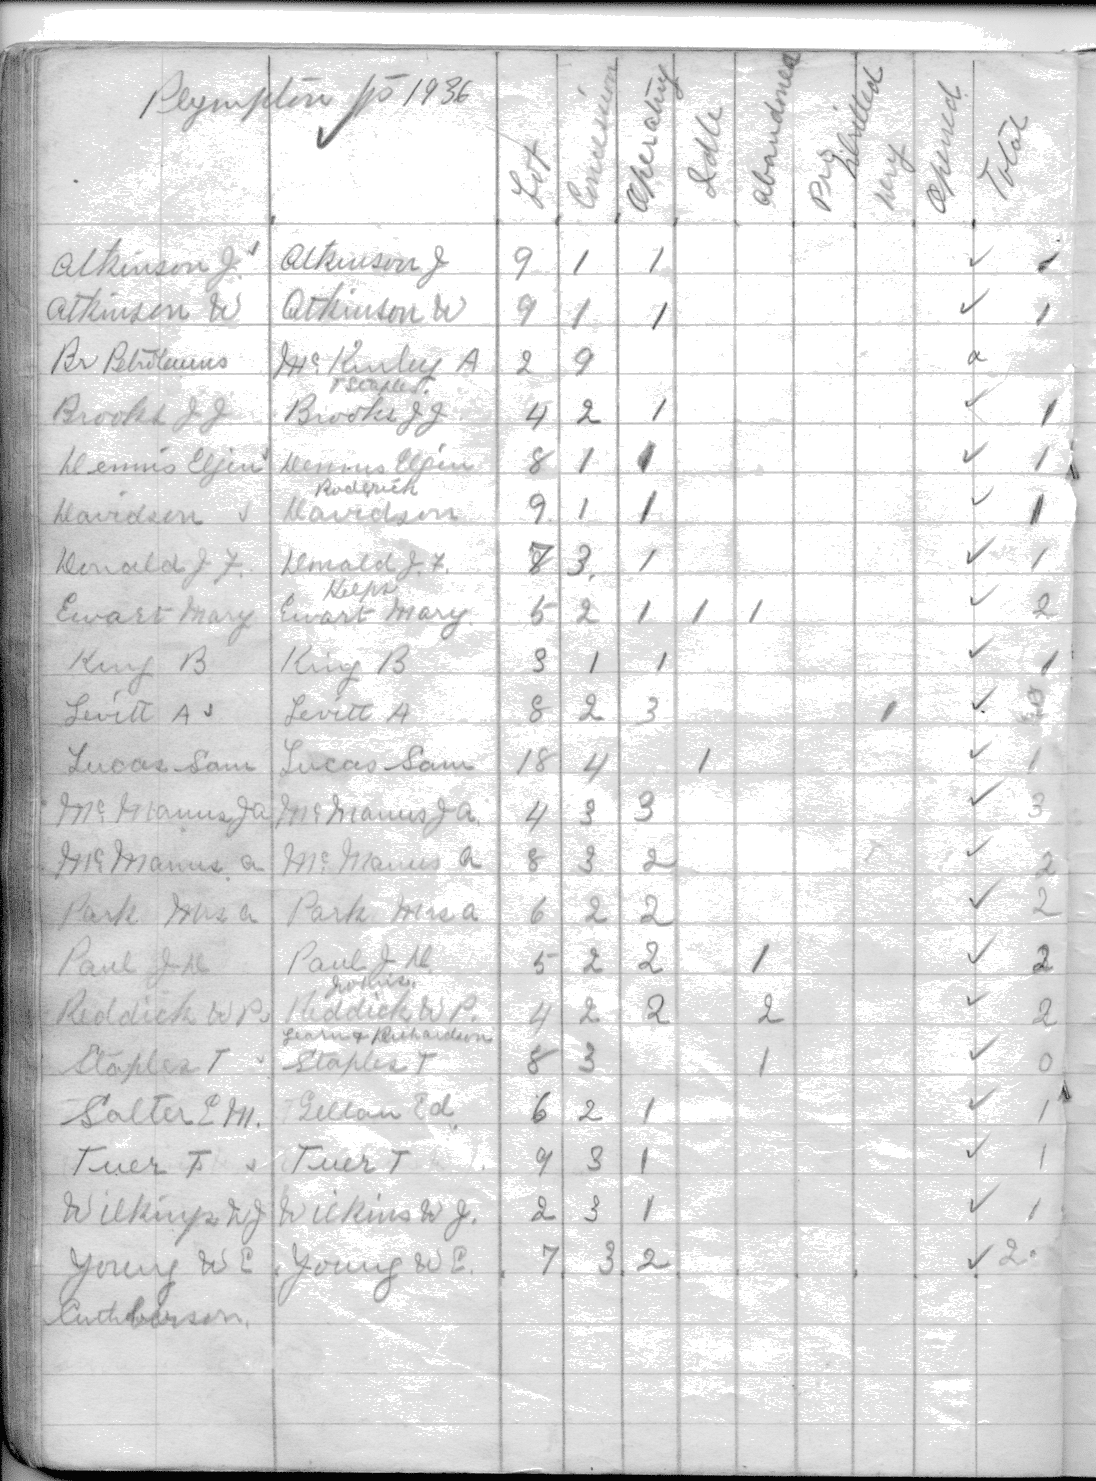 Plympton Tp 1936
✓
Lot Concession Operating Idle Abandoned Drilled Dry Opened Total
Atkinson J. Atkinson J 9 1 1 ✓ 1
Atkinson W Atkinson W 9 1 1 ✓ 1
Br Petroleums McKinley A 2 9 a
Brooks J J Brooks J J 4 2 1 ✓ 1
Dennis Elgin Dennis Elgin 8 1 1 ✓ 1
Roderick
Davidson Davidson 9 1 1 ✓ 1
Donald J F. Donald J. F. 8 3 1 ✓ 1
Ewart Mary Ewart Mary 5 2 1 1 1 ✓ 2
King B King B 3 1 1 ✓ 1
Levitt A Levitt A 8 2 3 1 ✓
Lucas Sam Lucas Sam 18 4 1 ✓ 1
McManus J A McManus J A. 4 3 3 ✓ 3
McManus. A McManus A 8 3 2 ✓ 2
Park Mrs A Park Mrs A 6 2 2 ✓ 2
Paul J H Paul J H 5 2 2 1 ✓ 2
Reddick W P. Reddick W P. 4 2 2 2 ✓ 2
Learn & Richardson
Staples T Staples T 8 3 1 ✓ 0
Salter E M. Gellan Ed 6 2 1 ✓ 1
Tuer T Tuer T 9 3 1 ✓ 1
Wilkins W J Wilkins W J. 2 3 1 ✓ 1
Young W E Young W E. 7 3 2 ✓ 2
Cuthberson.